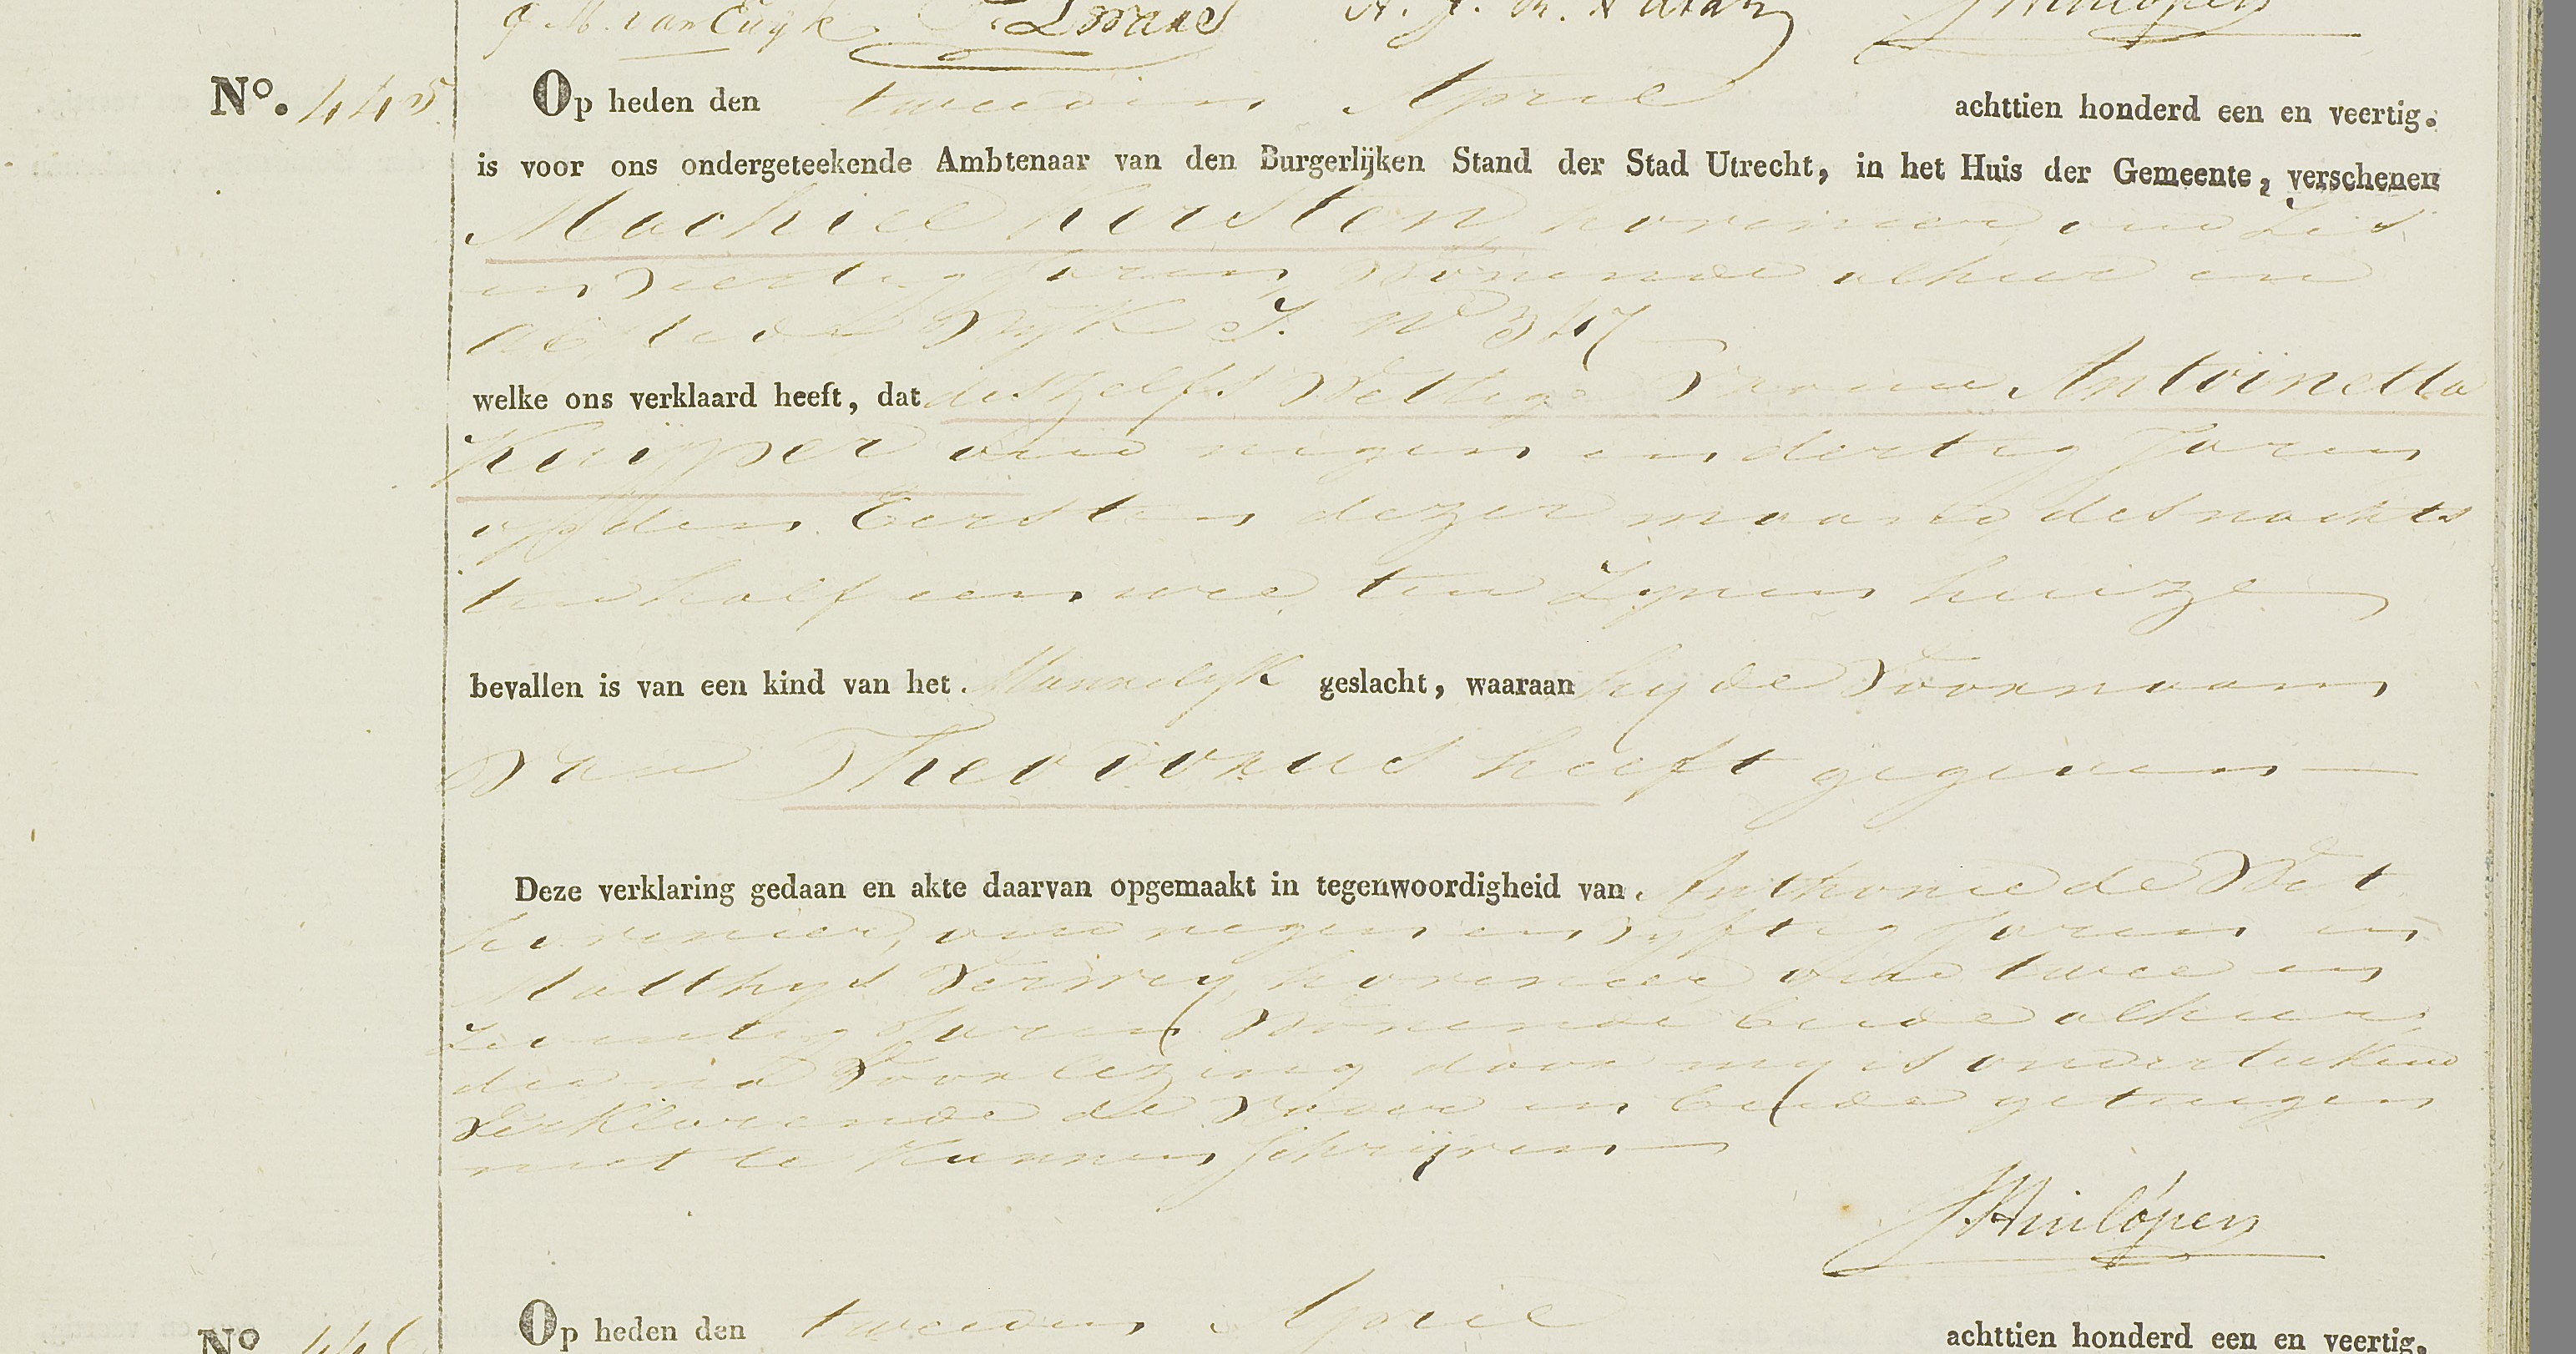 J M. van Cuyk
No. 445 Op heden den tweeden April achttien honderd een en veertig.
is voor ons ondergeteekende Ambtenaar van den Burgerlijken Stand der Stad Utrecht, in het Huis der Gemeente, verschenen
Machiel Kersten, hovenier, oud Zes
en Veertig Jaren, Wonende alhier in
Wijk I. No 347
welke ons verklaard heeft, dat deszelfs Wettige Vrouw Antoinetta
Kuijper oud negen en dertig Jaren
op den Eersten dezer maand des nachts
ten half een ure ten Zynen huize
bevallen is van een kind van het Mannelyk geslacht, waaraan hy de Voornaam
van Theodorus heeft gegeven
Deze verklaring gedaan en akte daarvan opgemaakt in tegenwoordigheid van Anthonie de Wit
hovenier, oud negen en Vyftig Jaren en
Matthys Verwey, hovenier oud twee en
Zeventig Jaren, Wonende beide alhier
die na Voorlezing door my is onderteekend
Verklarende de Vader en beide getuigen
niet te kunnen schrijven
JHinlópen
No 446 Op heden den tweeden April achttien honderd een en veertig.